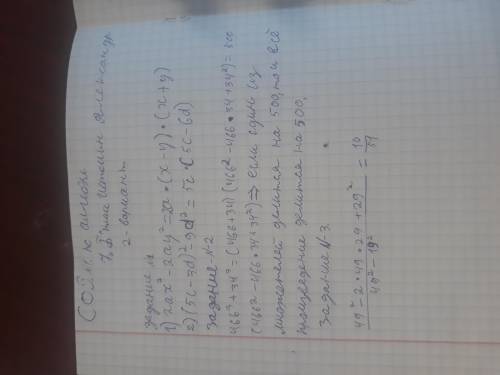 СОЧ по алгебре
7 "Б" Александр
2-вариант
Задание 1
1) 2ax²-2ay²=2a•(x-y)•(x+y)
2) (5c-3d)²-9d²=5c•(5c-6d)
Задание N-2
466³+34³=(466+34)(466²-466•34+34²)=500
(466²-466•34+34²)⇒ если один из
множителей делится на 500, то и всё
произведение делится на 500.
Задание N-3.
49²-2•49•29+29² / 49²-19² = 10/59